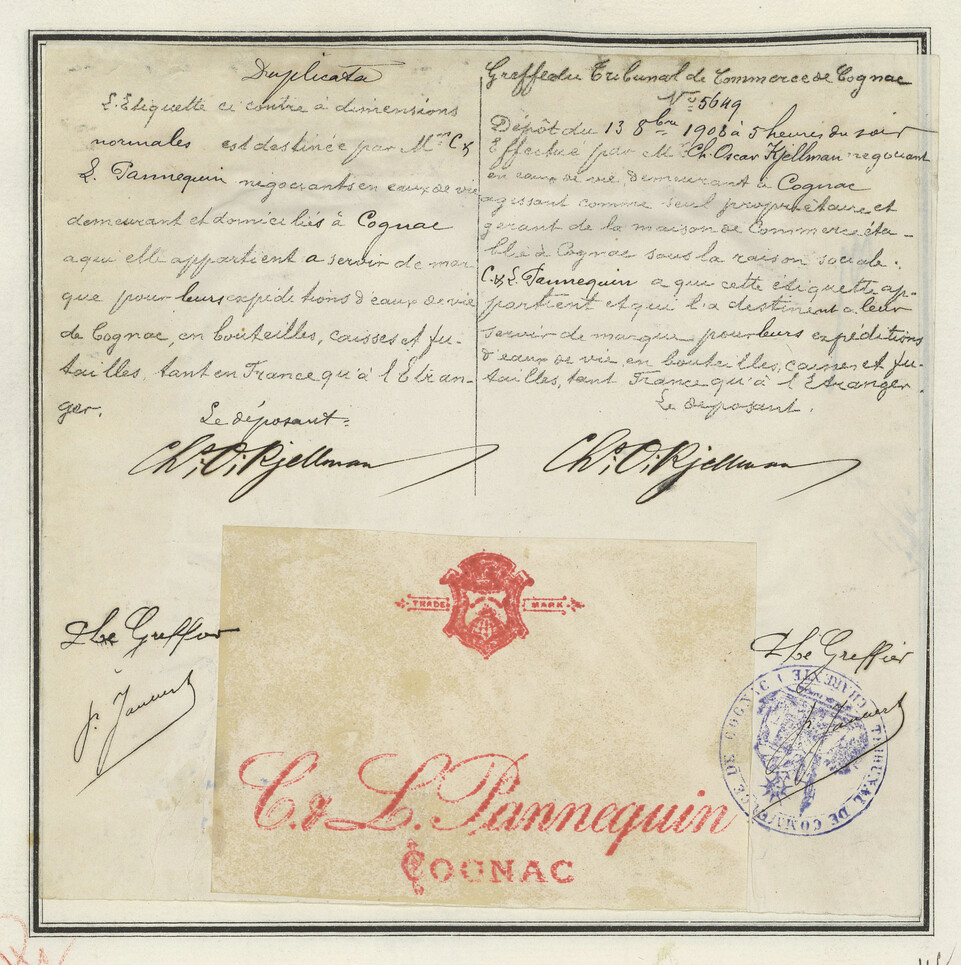 Duplicata
L'Etiquette ci contre à dimensions
normales est destinée par Mm C &
L. Pannequin négociants en eaux de vie
demeurant et domiciliés à Cognac
a qui elle appartient a servir de mar-
que pour leurs expéditions d'eaux de vie
de Cognac, en bouteilles, caisses et fu-
tailles, tant en France qu'à l'Etran-
ger.
Le déposant.
Chs. O. Kjellman
Greffe du Tribunal de Commerce de Cognac
No 5649
Dépôt du 13 8bre 1908 à 5 heures du soir
Effectué par M Ch. Oscar Kjellman négociant
en eaux de vie, demeurant à Cognac
agissant comme seul propriétaire et
gérant de la maison de Commerce éta-
blie à Cognac sous la raison sociale:
C. & L. Pannequin a que cette étiquette ap-
partient et qui l'a destinent a leur
servir de marque pour leurs expéditions
d'eaux de vie en bouteilles, caisses et fu-
tailles, tant France qu'à l'Etranger.
Le déposant.
Chs. O. Kjellman
TRADE MARK
Le Greffier
Le Greffier
C. & L. Pannequin
COGNAC
TRIBUNAL DE COMMERCE DE COGNAC (CHARENTE)